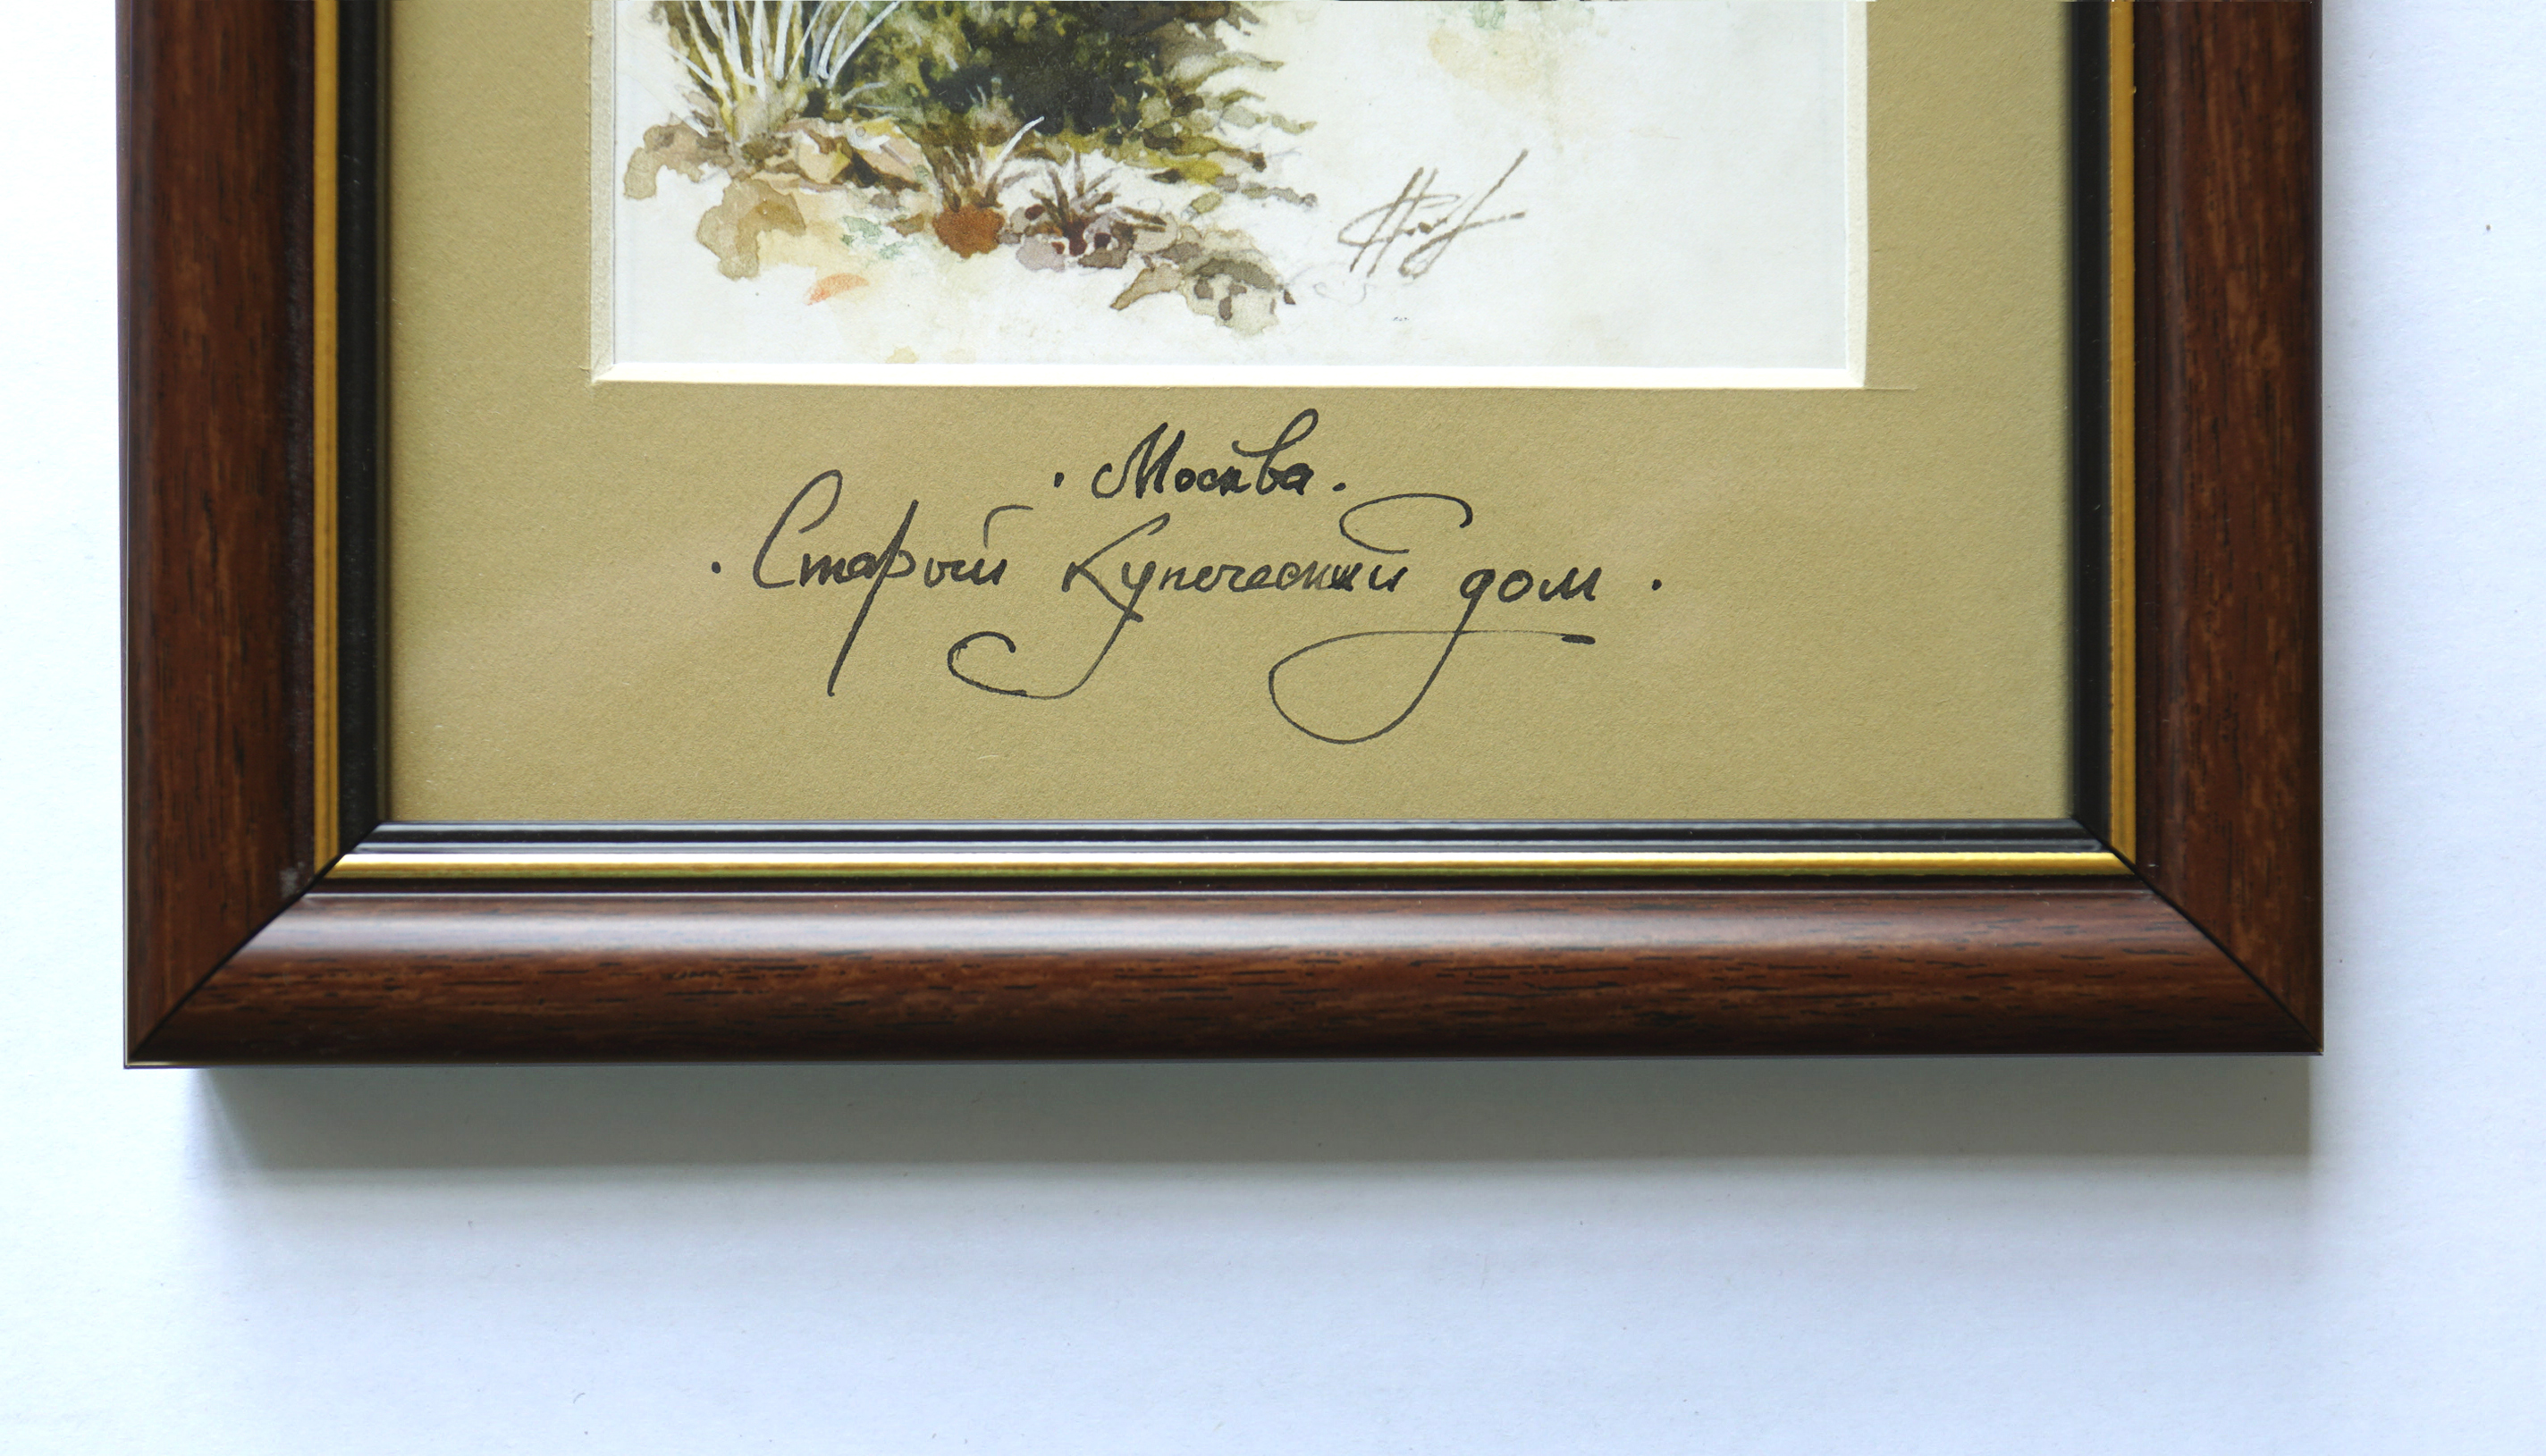 . Москва .
. Старый Купеческий дом .